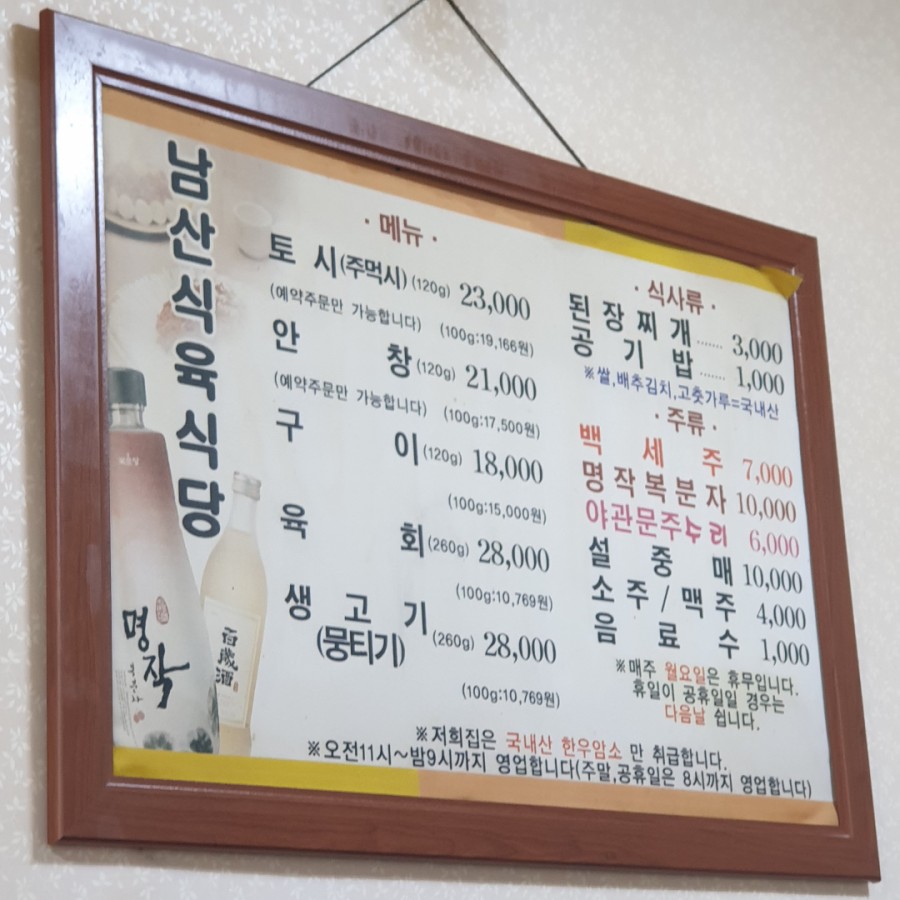 남산식육식당
· 메뉴 ·
토 시(주먹시) (120g) 23,000
(예약주문만 가능합니다) (100g:19,166원)
안 창 (120g) 21,000
(예약주문만 가능합니다) (100g:17,500원)
구 이 (120g) 18,000
(100g:15,000원)
육 회 (260g) 28,000
(100g:10,769원)
생 고 기 (260g) 28,000
(뭉티기)
(100g:10,769원)
· 식사류 ·
된 장 찌 개 ....... 3,000
공 기 밥 ....... 1,000
※쌀,배추김치,고춧가루=국내산
· 주류 ·
백 세 주 7,000
명 작 복 분 자 10,000
야관문주수리 6,000
설 중 매 10,000
소 주 / 맥 주 4,000
음 료 수 1,000
※매주 월요일은 휴무입니다.
휴일이 공휴일일 경우는
다음날 쉽니다.
※저희집은 국내산 한우암소 만 취급합니다.
※오전11시~밤9시까지 영업합니다(주말,공휴일은 8시까지 영업합니다)
명작
복분자
百歲酒